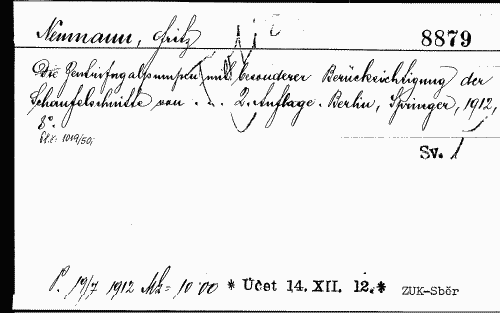 Neumann, Fritz
8879
Die Zentrifugalpumpen mit besonderer Berücksichtigung der
Schaufelschnitte von . . . 2. Auflage. Berlin, Springer, 1912,
8°.
Sv. 1
P. 19/7 1912 Mk = 10·00 * Účet 14. XII. 12.* ZUK-Sběr